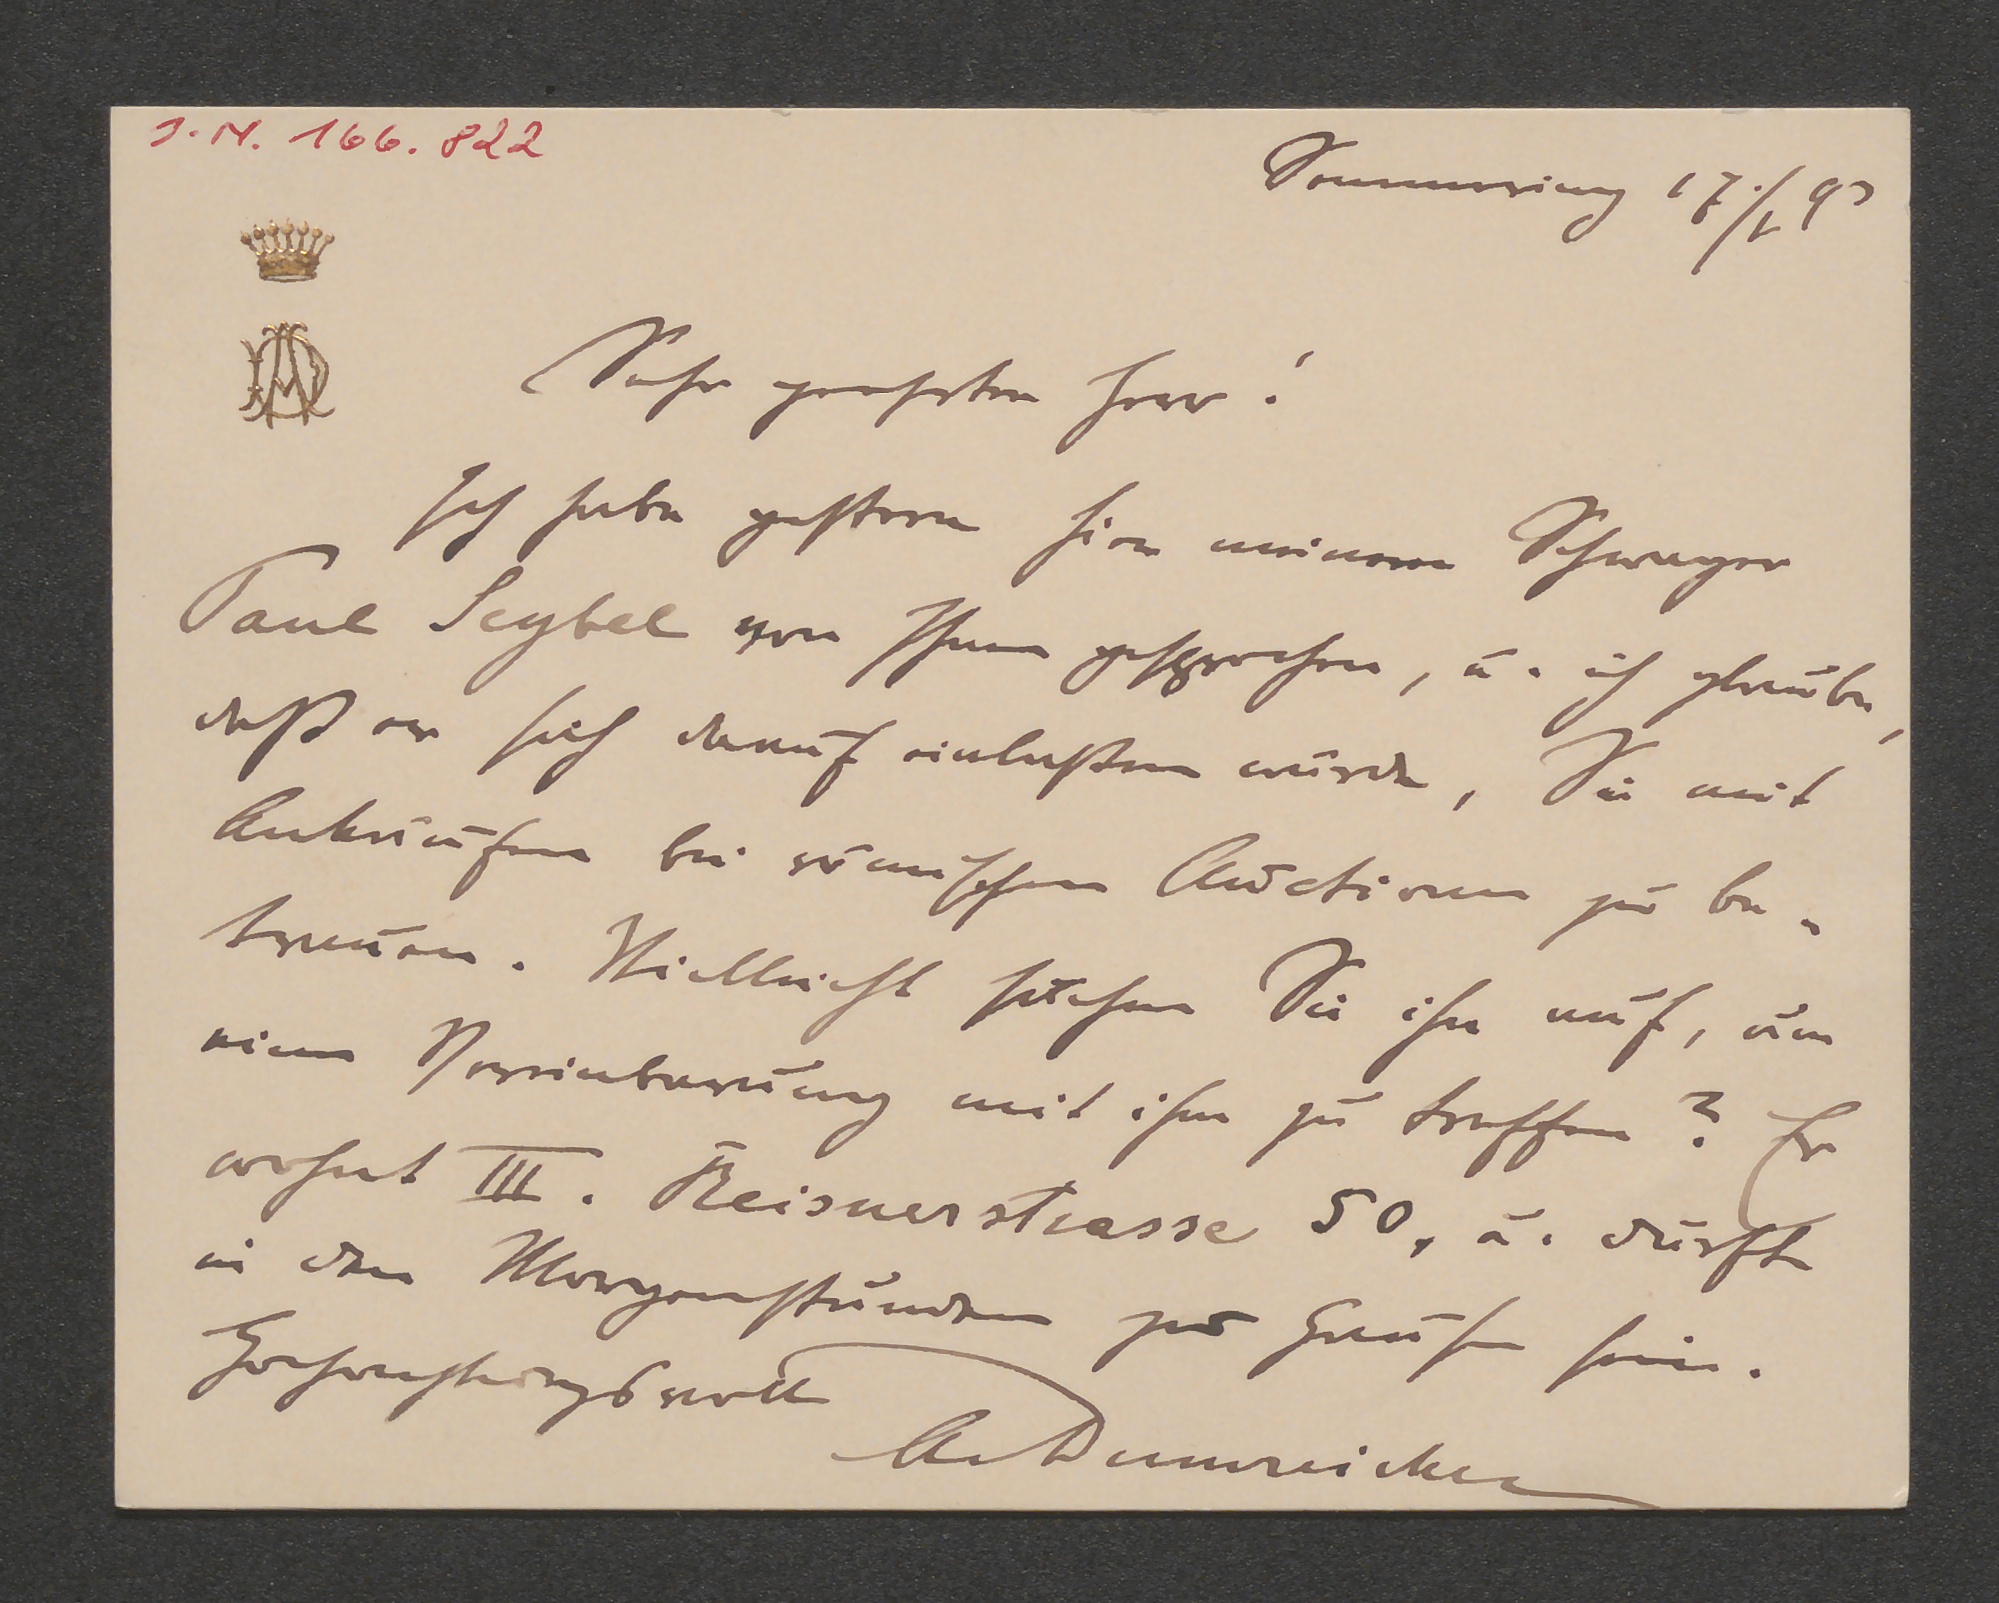 J. N. 166.822
Semmering 17/1 93
AD
Sehr geehrter Herr!
Ich habe gestern hier meinem Schwager
Paul Seybel von Ihnen gesprochen, u. ich glaube,
daß er sich darauf einlaßen würde, Sie mit
Ankäufen bei römischen Auctionen zu be-
trauen. Vielleicht suchen Sie ihn auf, um
eine Vereinbarung mit ihm zu treffen? Er
wohnt III. Reisnerstrasse 50, u. dürfte
in den Morgenstunden zu Hause sein.
Hochachtungsvoll
A. Dumreicher